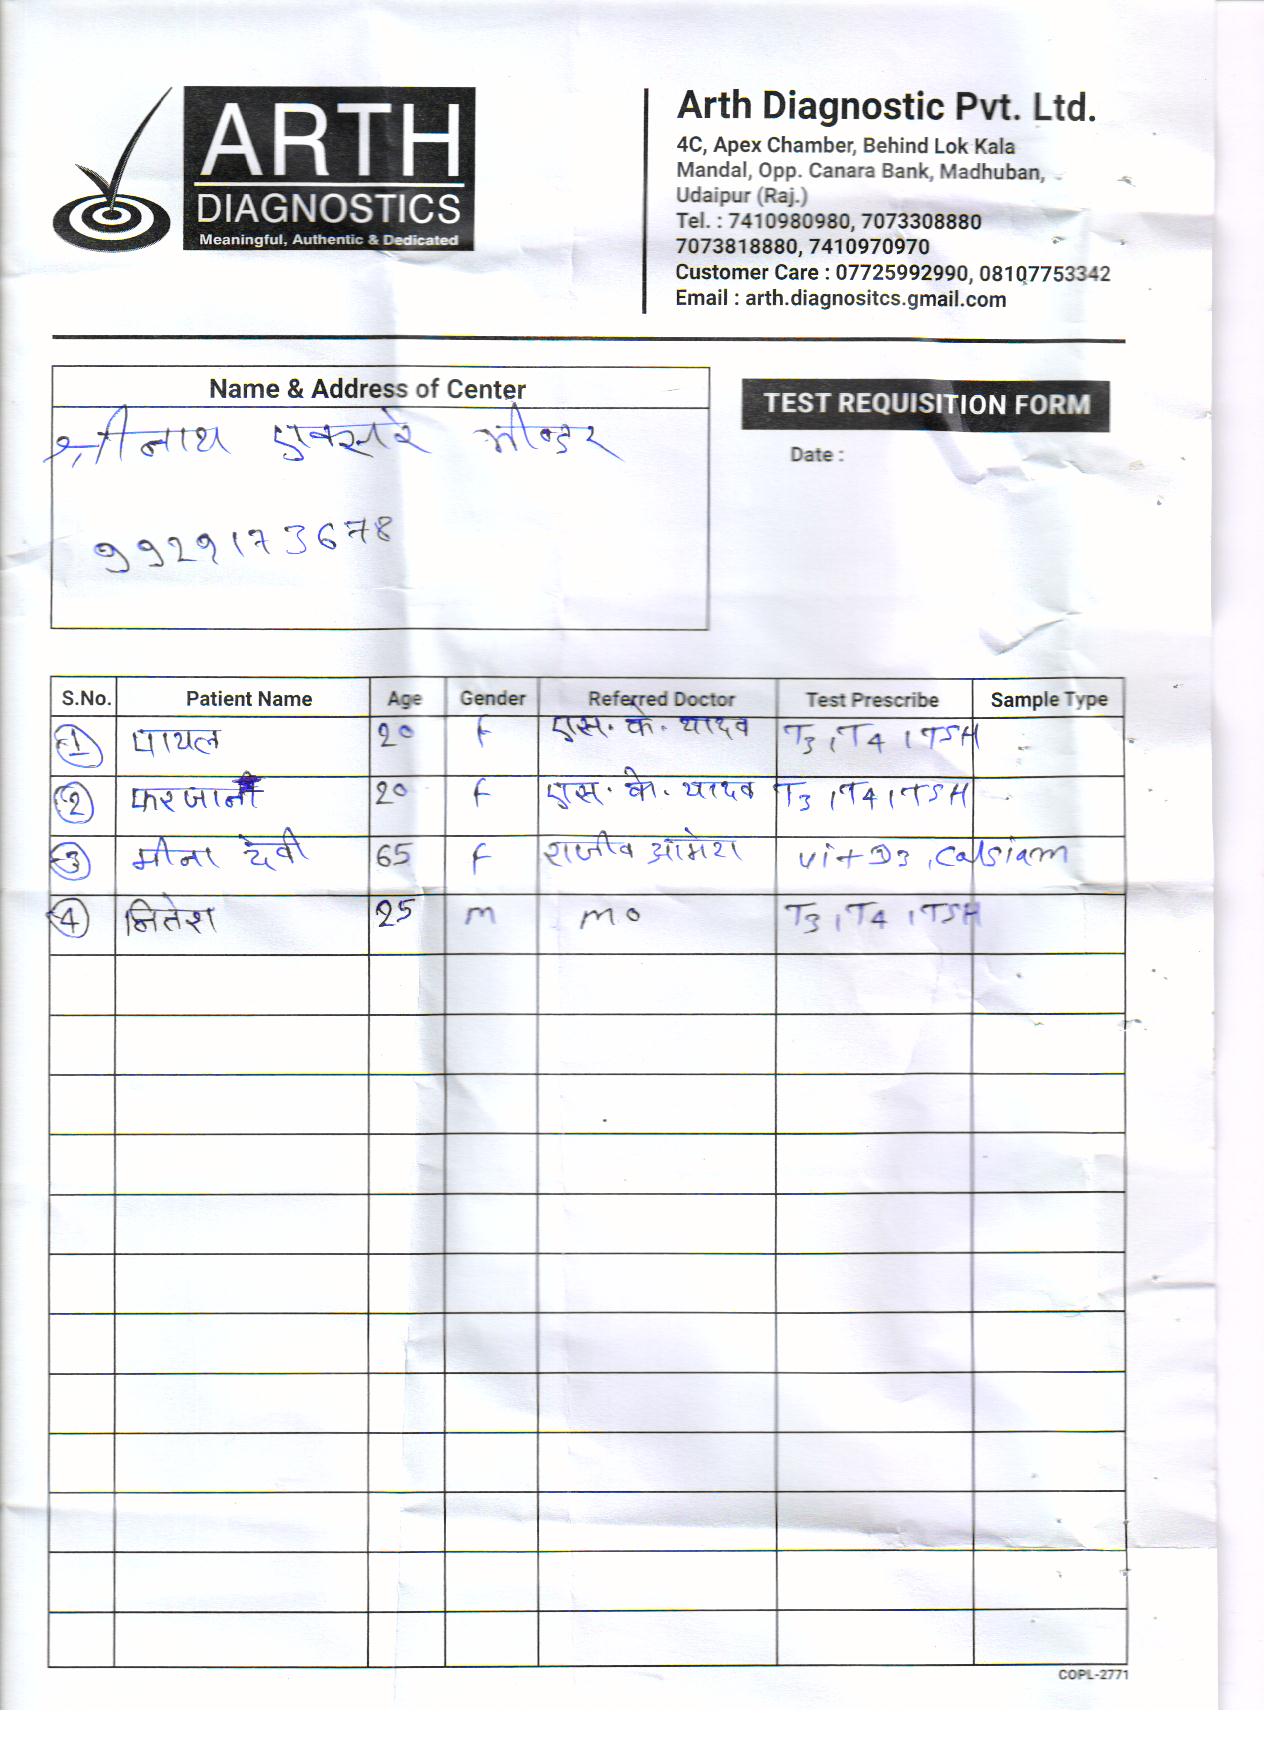 ARTH
DIAGNOSTICS
Meaningful, Authentic & Dedicated
Arth Diagnostic Pvt. Ltd.
4C, Apex Chamber, Behind Lok Kala
Mandal, Opp. Canara Bank, Madhuban,
Udaipur (Raj.)
Tel. : 7410980980, 7073308880
7073818880, 7410970970
Customer Care : 07725992990, 08107753342
Email : arth.diagnositcs.gmail.com
Name & Address of Center
श्रीनाथ एक्सरे भीण्डर
9929173678
TEST REQUISITION FORM
Date :
S.No. Patient Name Age Gender Referred Doctor Test Prescribe Sample Type
1 पायल 20 F एस. के. यादव T3, T4, TSH
2 फरजाना 20 F एस. के. यादव T3, T4, TSH
3 मीना देवी 65 F राजीव vit D3, Calsiam
4 नितेश 25 m mo T3, T4, TSH
COPL-2771